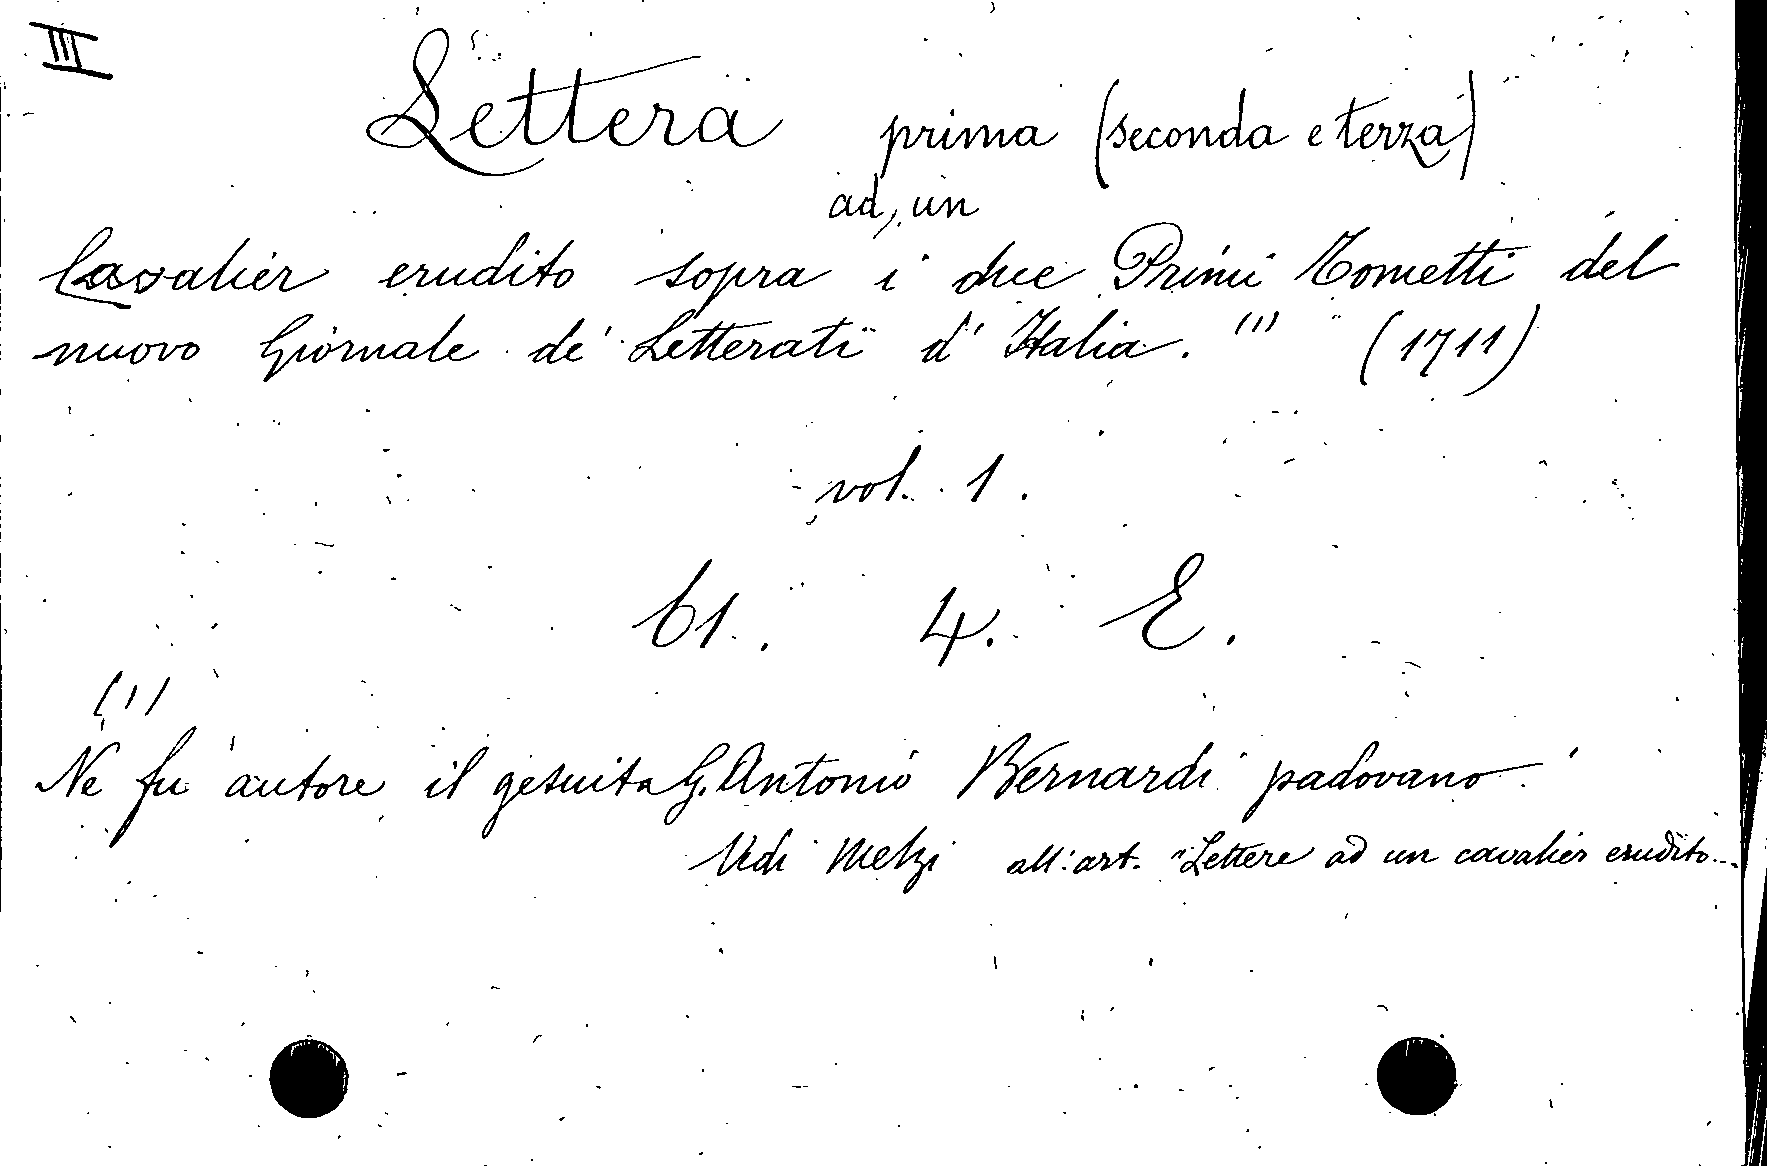 III
Lettera prima (seconda e terza)
ad un
Cavalier erudito sopra i due Primi Tometti del
nuovo Giornale de' Letterati d'Italia. (1) (1711)
vol. 1.
61. 4. E.
(1)
Ne fu autore il gesuita G. Antonio Bernardi padovano.
Vedi Melzi all'art. "Lettere ad un cavalier erudito...